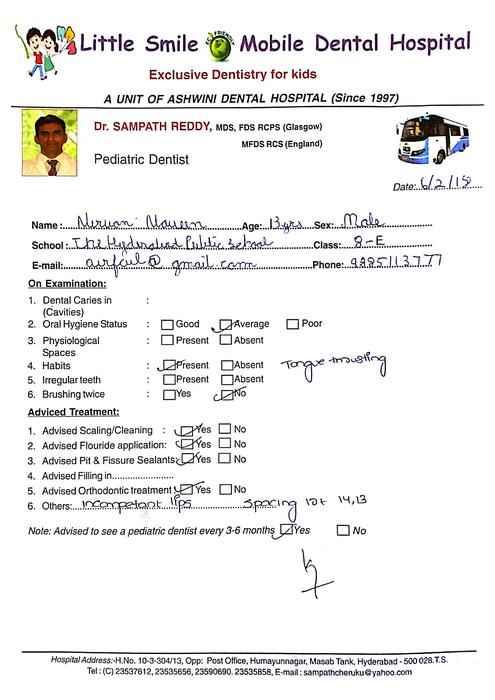 Little Smile ECO FRIENDLY Mobile Dental Hospital
Exclusive Dentistry for kids
A UNIT OF ASHWINI DENTAL HOSPITAL (Since 1997)
Dr. SAMPATH REDDY, MDS, FDS RCPS (Glasgow)
MFDS RCS (England)
Pediatric Dentist
Date: 6/2/18
Name: Nirvan Naveen Age: 13yrs Sex: Male
School: The Hyderabad Public School Class: 8-E
E-mail: @ gmail.com Phone: 9885113777
On Examination:
1. Dental Caries in :
(Cavities)
2. Oral Hygiene Status : Good Average Poor
3. Physiological : Present Absent
Spaces
4. Habits : Present Absent Tongue thrusting
5. Irregular teeth : Present Absent
6. Brushing twice : Yes No
Adviced Treatment:
1. Advised Scaling/Cleaning : Yes No
2. Advised Flouride application: Yes No
3. Advised Pit & Fissure Sealants: Yes No
4. Advised Filling in....................
5. Advised Orthodontic treatment Yes No
6. Others: incompetent lips spacing 14,13
Note: Advised to see a pediatric dentist every 3-6 months Yes No
Hospital Address:-H.No. 10-3-304/13, Opp: Post Office, Humayunnagar, Masab Tank, Hyderabad - 500 028.T.S.
Tel : (C) 23537612, 23535656, 23590690. 23535858, E-mail : sampathcheruku@yahoo.com